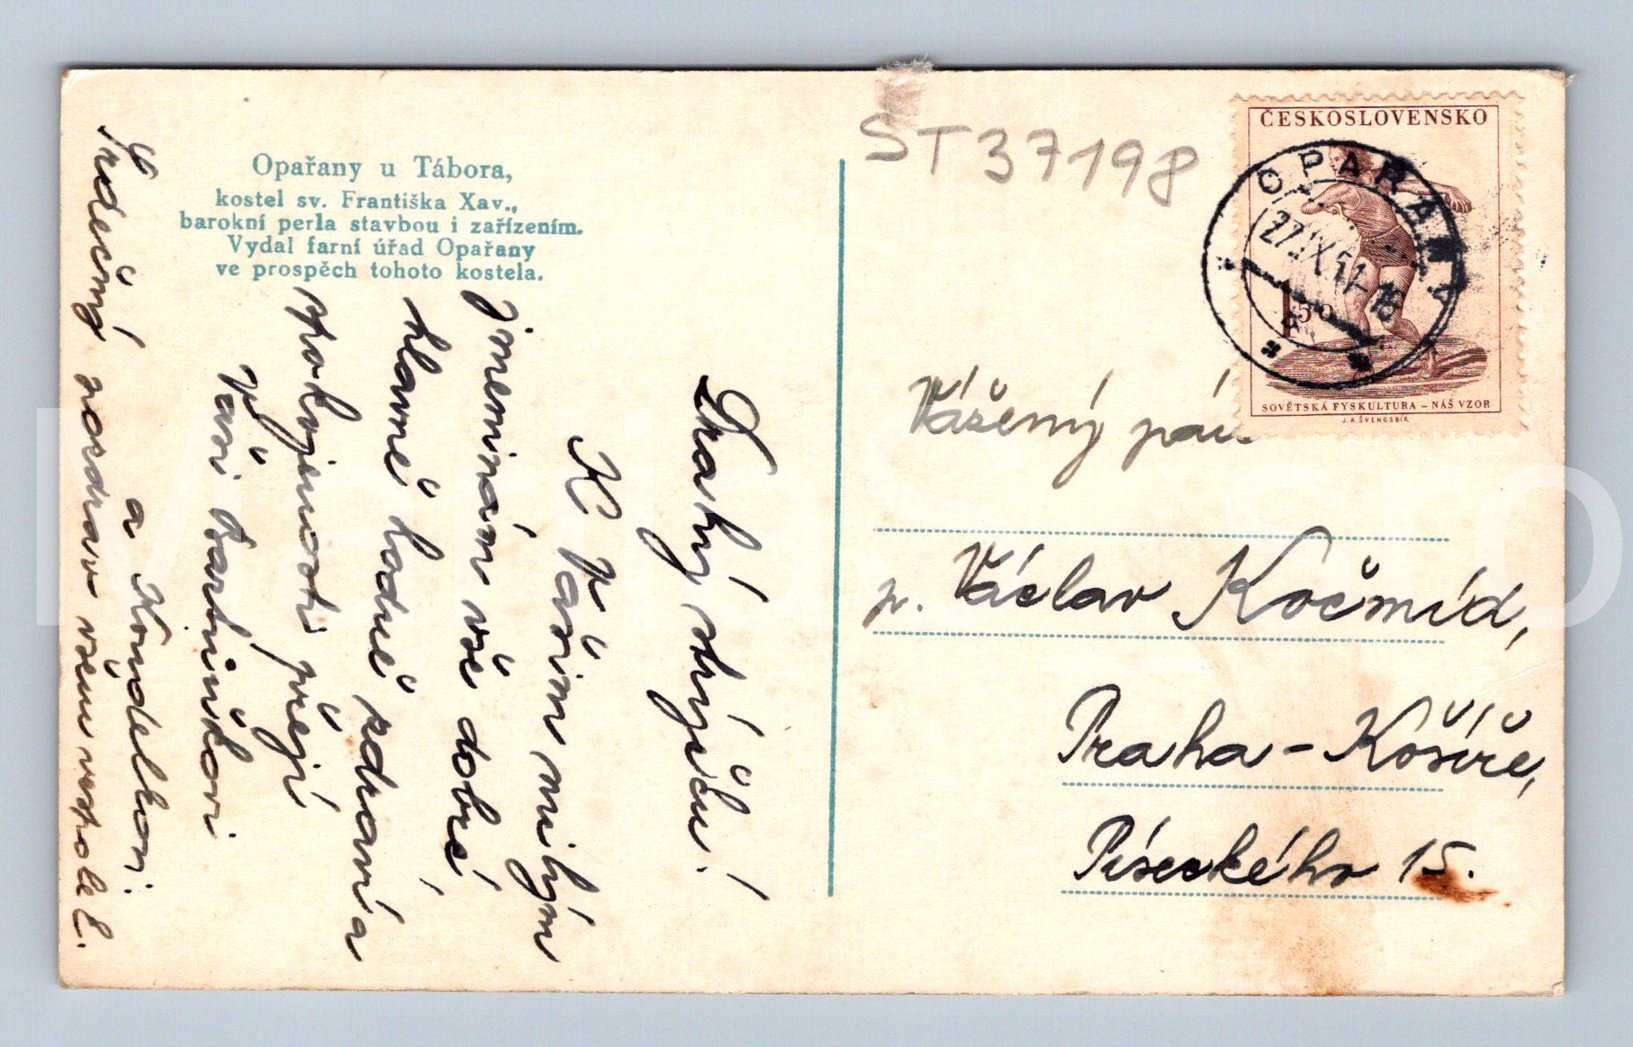 Opařany u Tábora,
kostel sv. Františka Xav.,
barokní perla stavbou i zařízením.
Vydal farní úřad Opařany
ve prospěch tohoto kostela.
Drahý strýčku!
K Vašim milým
jmeninám vše dobré,
hlavně hodně zdraví a
spokojenosti přejí
Vaši Bartůňkovi
a Kondelkovi.
Srdečný pozdrav všem vespolek.
ST37198
ČESKOSLOVENSKO
OPAŘANY
27.IX.51-16
a
1.50
SOVĚTSKÁ FYSKULTURA – NÁŠ VZOR
J.A.ŠVENGSBÍR
Vážený pán
p. Václav Kočmíd,
Praha – Košíře,
Píseckého 15.